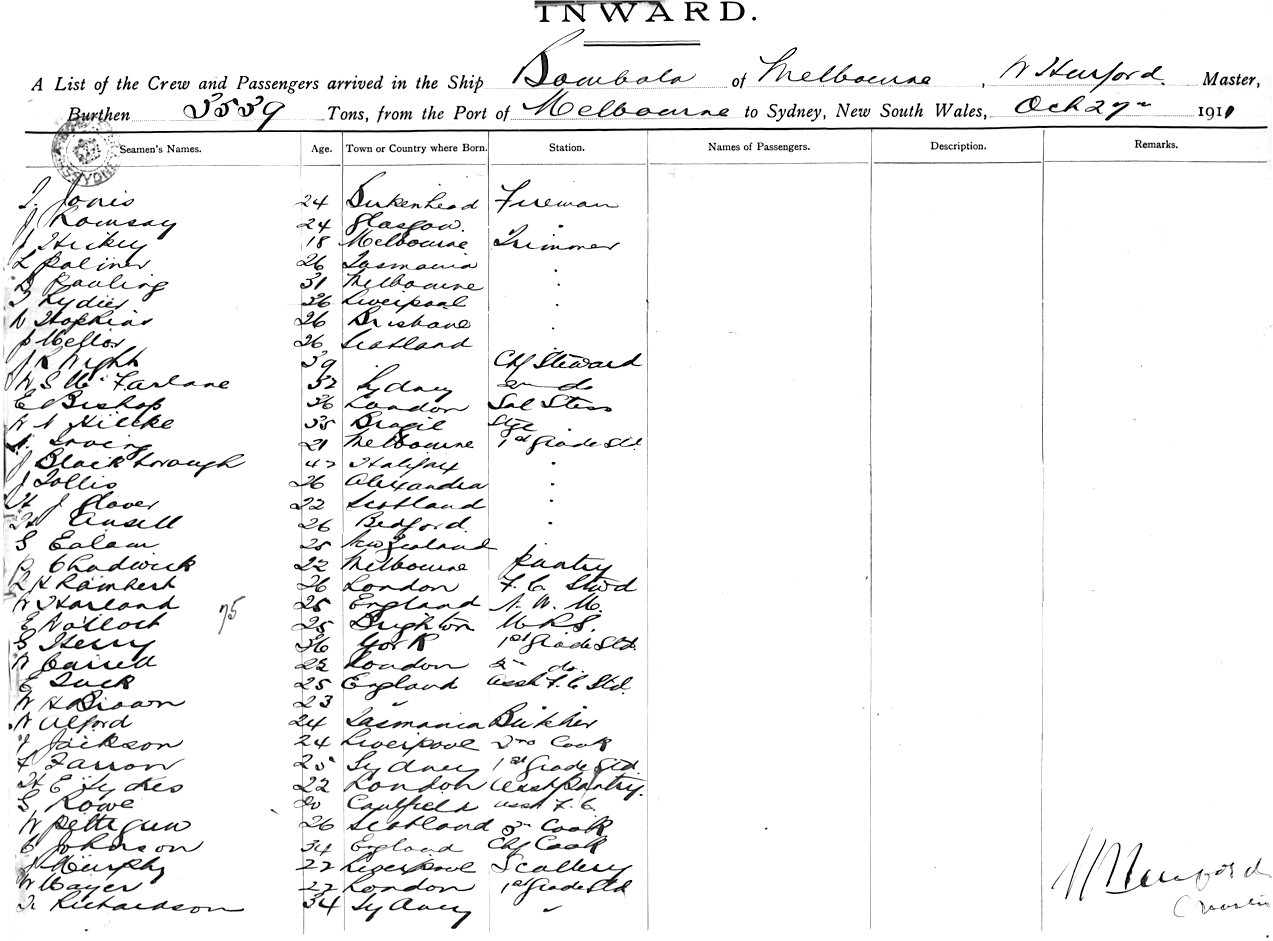 INWARD.
A List of the Crew and Passengers arrived in the Ship Bombala of Melbourne, W Hurford Master,
Burthen 3539 Tons, from the Port of Melbourne to Sydney, New South Wales, Oct 27th 1911
Seamen's Names. Age. Town or Country where Born. Station. Names of Passengers. Description. Remarks.
Jones 24 Birkenhead Fireman
J Ramsay 24 Glasgow "
J Hickey 18 Melbourne Trimmer
L Palmer 26 Tasmania "
Pauling 31 Melbourne "
Lydier 36 Liverpool "
W Hopkins 26 Brisbane "
P Mellor 26 Scotland "
J R Wright 39 Chf Steward
W S McFarlane 32 Sydney 2nd do
E Bishop 36 London Sal Stess
W N Hilcke 35 Brazil Stge
Irving 21 Melbourne 1st Grade Std
J Blackborough 42 Halifax "
J Tollis 26 Alexandra "
H J Glover 22 Scotland "
Ansell 26 Bedford "
S Ealam 25 New Zealand
P Chadwick 22 Melbourne Pantry
L H Lambert 26 London F. C. Stwd
W Harland 25 England N. W. M.
75
E Wallock 25 Brighton W R S.
S Henry 36 York 1st Grade Std
W Carrell 22 London 2nd do.
E Tuck 25 England Asst F. C Std.
W H Brown 23 "
W Alford 24 Tasmania Butcher
J Jackson 24 Liverpool 2nd Cook
F Farron 25 Sydney 1st Grade Std
H E Sykes 22 London Asst Pantry.
S Rowe 20 Caulfield Asst F. C.
W Pettigrew 26 Scotland 3rd Cook
C Johnson 34 England Chf Cook
J Murphy 22 Liverpool Scullery
W Mayer 22 London 1st Grade Std
Richardson 34 Sydney "
W Hurford
Master